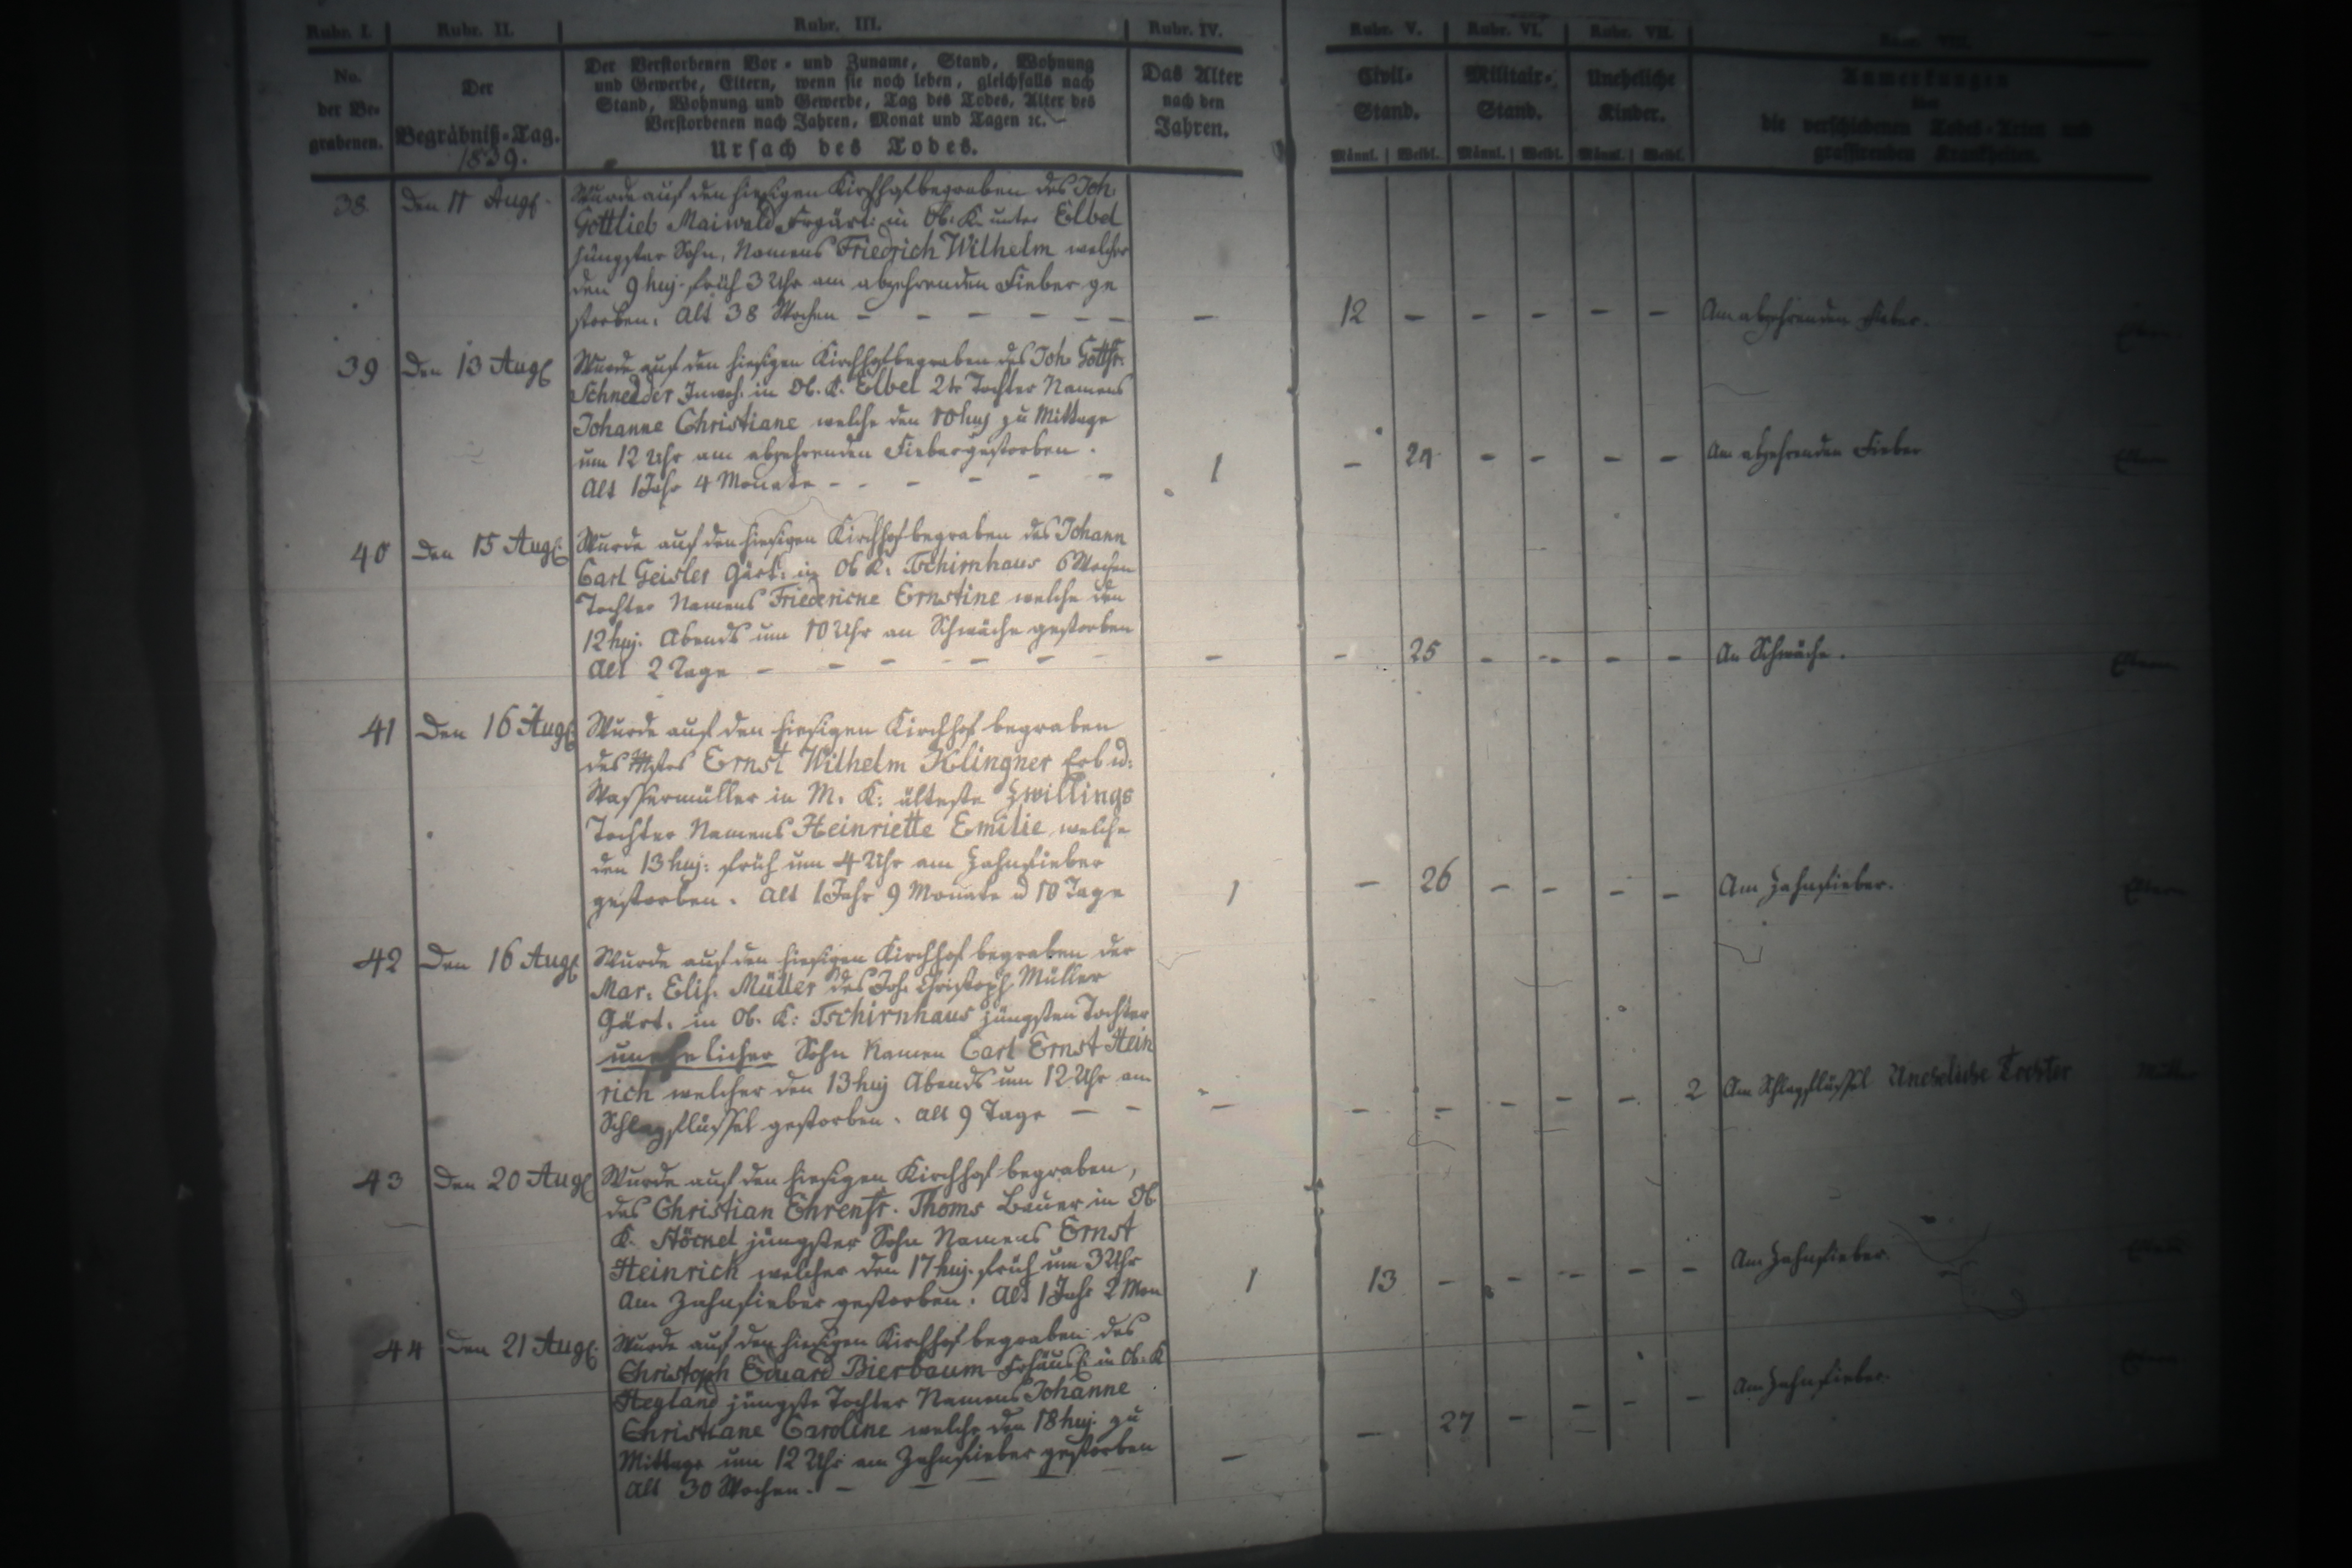 Rubr. I. Rubr. II. Rubr. III. Rubr. IV. Rubr. V. Rubr. VI. Rubr. VII. Rubr. VIII.
No.
der Be-
grabenen.
Der
Begräbniß-Tag.
1839.
Der Verstorbenen Vor- und Zuname, Stand, Wohnung
und Gewerbe, Eltern, wenn sie noch leben, gleichfalls nach
Stand, Wohnung und Gewerbe, Tag des Todes, Alter des
Verstorbenen nach Jahren, Monat und Tagen ꝛc.
Ursach des Todes.
Das Alter
nach den
Jahren.
Civil-
Stand.
Militair-
Stand.
Uneheliche
Kinder.
Anmerkungen
über
die verschiedenen Todes-Arten und
grassirenden Krankheiten.
Männl. Weibl. Männl. Weibl. Männl. Weibl.
38 Den 11 Aug. Wurde auf den hiesigen Kirchhof begraben des Joh.
Gottlieb Maiwald Frgärt: in Ob. K. unter Elbel
jüngster Sohn, Namens Friedrich Wilhelm welcher
den 9 huj. früh 3 Uhr am abzehrenden Fieber ge
storben. Alt 38 Wochen - - - - - - - 12 - - - - - Am abzehrenden Fieber.
39 Den 13 Aug Wurde auf den hiesigen Kirchhof begraben des Joh. Gottfr.
Schneider Inwoh. in Ob. K. Elbel 2te Tochter Namens
Johanne Christiane welche den 10 huj zu Mittage
um 12 Uhr am abzehrenden Fieber gestorben.
Alt 1 Jahr 4 Monate - - - - - - 1 - 24 - - - - Am abzehrenden Fieber Eltern
40 Den 15 Aug Wurde auf den hiesigen Kirchhof begraben des Johann
Carl Geisler Gärt: in Ob K: Tschirnhaus 6 Wochen
Tochter Namens Friedericke Ernstine welche den
12 huj. Abends um 10 Uhr an Schwäche gestorben
Alt 2 Tage - - - - - - - - 25 - - - - An Schwäche. Eltern
41 Den 16 Aug Wurde auf den hiesigen Kirchhof begraben
des Mstrs Ernst Wilhelm Klingner Erb u:
Wassermüller in M. K: älteste Zwillings
Tochter Namens Heinriette Emilie welche
den 13 huj: früh um 4 Uhr am Zahnfieber
gestorben. Alt 1 Jahr 9 Monate u 10 Tage 1 - 26 - - - - Am Zahnfieber. Eltern
42 Den 16 Aug Wurde auf den hiesigen Kirchhof begraben der
Mar. Elis. Müller des Joh. Christoph Müller
Gärt. in Ob. K: Tschirnhaus jüngsten Tochter
unehelicher Sohn Namen Carl Ernst Hein
rich welcher den 13 huj Abends um 12 Uhr am
Schlagflüssel gestorben. Alt 9 Tage - - - - - - - - 2 Am Schlagflüssel Uneheliche Tochter Mutter
43 Den 20 Aug Wurde auf den hiesigen Kirchhof begraben,
des Christian Ehrenfr. Thoms Bauer in Ob.
K. Stöckel jüngster Sohn Namens Ernst
Heinrich welcher den 17 huj. früh um 3 Uhr
Am Zahnfieber gestorben. Alt 1 Jahr 2 Mon 1 13 - - - - - Am Zahnfieber. Eltern
44 Den 21 Aug. Wurde auf den hiesigen Kirchhof begraben des
Christoph Eduard Bierbaum Frhäusl. in Ob. K
Heyland jüngste Tochter Namens Johanne
Christiane Caroline welche den 18 huj. zu
Mittage um 12 Uhr am Zahnfieber gestorben
Alt 30 Wochen. - - - - - - - 27 - - - - Am Zahnfieber. Eltern